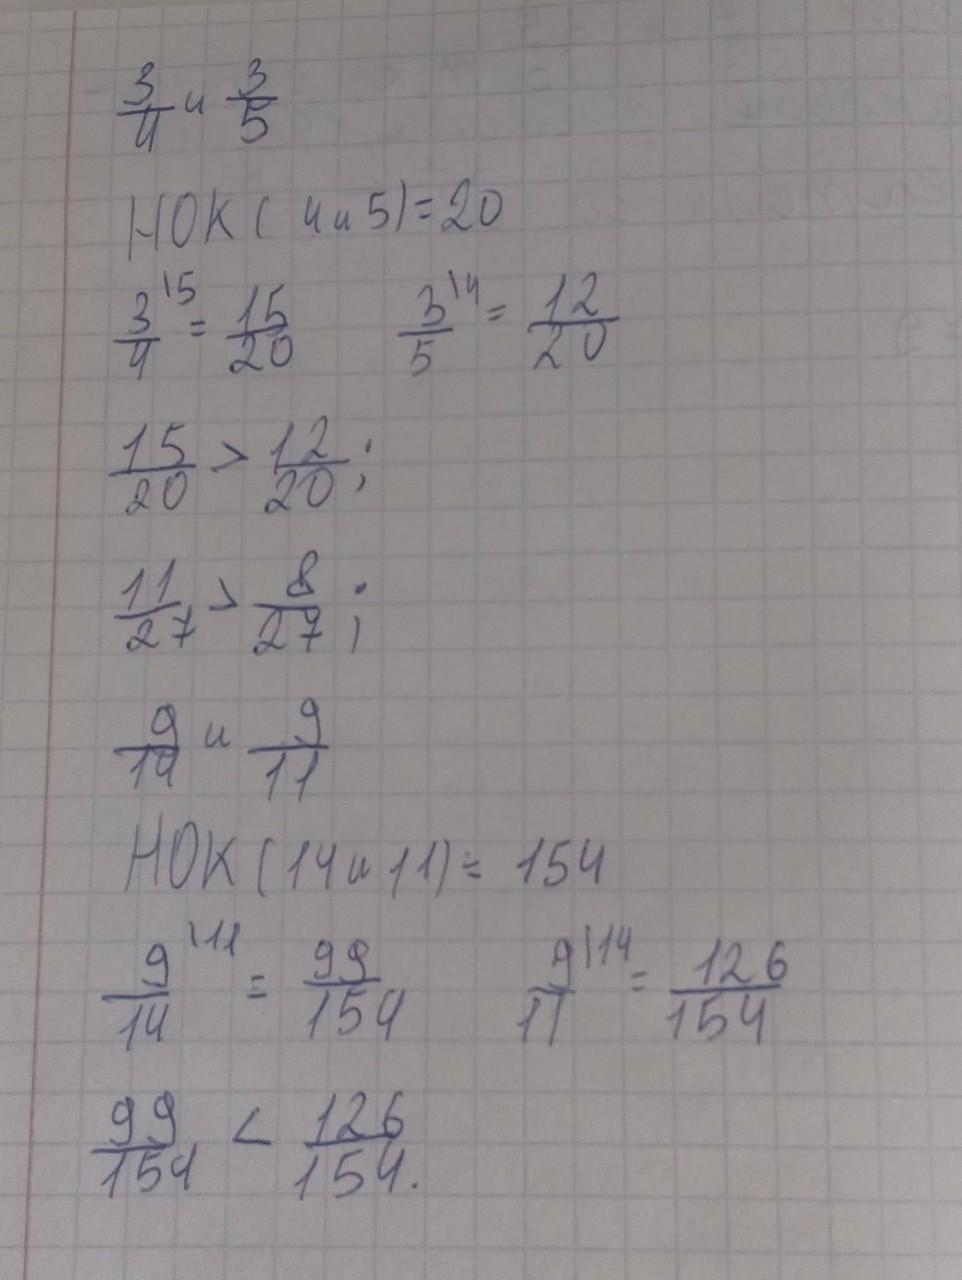 3/4 и 3/5
НОК( 4 и 5)=20
3/4 \5 = 15/20 3/5 \4 = 12/20
15/20 > 12/20;
11/27 > 8/27;
9/14 и 9/11
НОК (14 и 11) = 154
9/14 \11 = 99/154 9/11 \14 = 126/154
99/154 < 126/154.